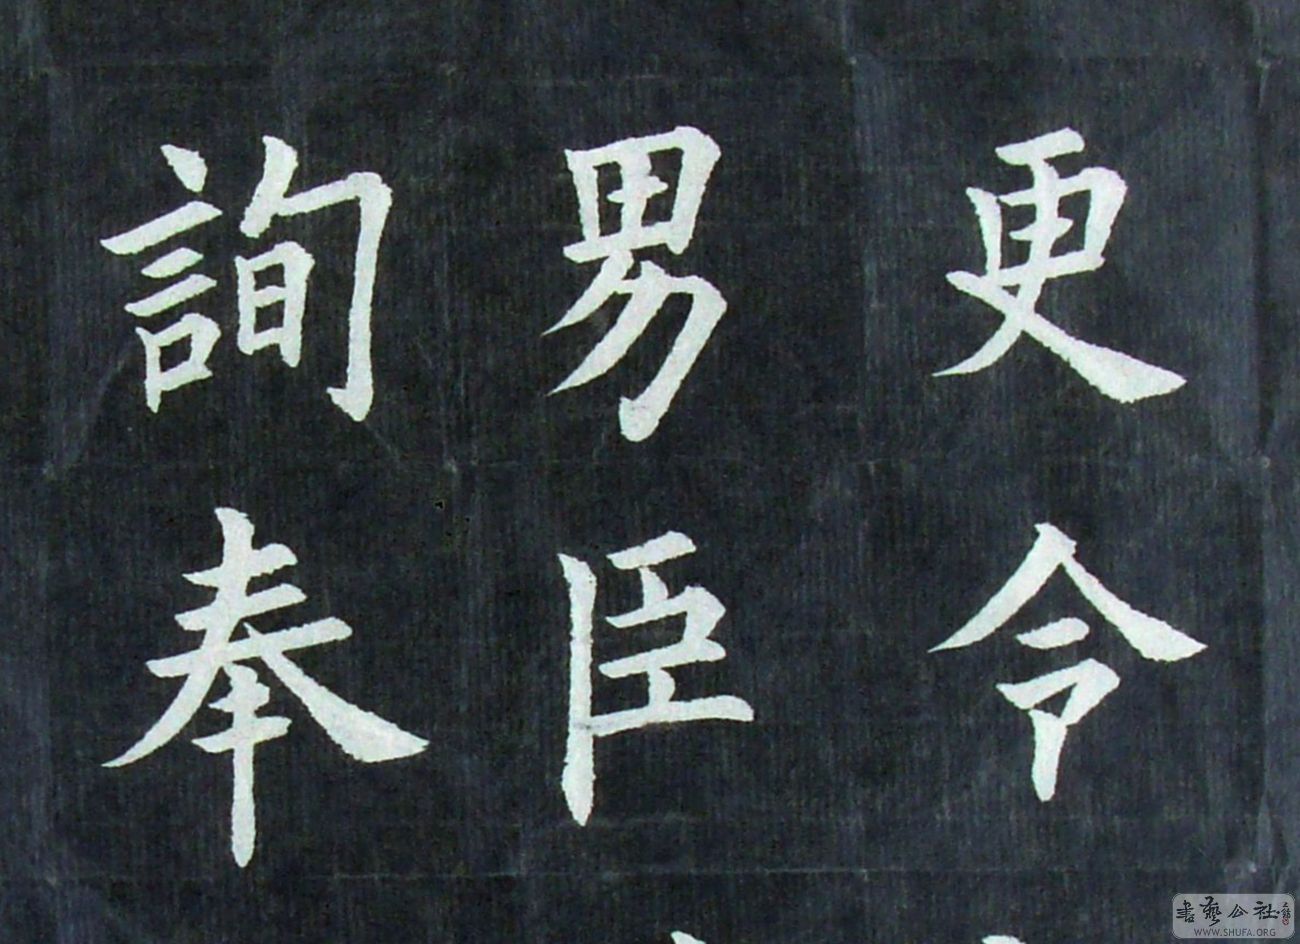 更令
男臣
詢奉
書藝公社
WWW.SHUFA.ORG